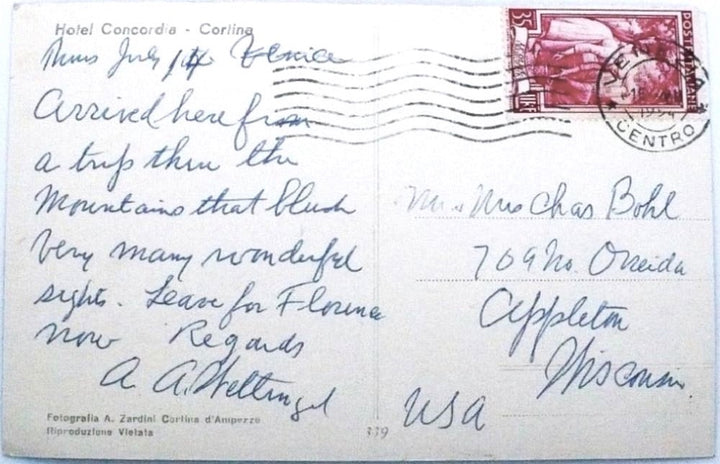 Hotel Concordia - Cortina
Thurs July 14 Venice
Arrived here from
a trip thru the
Mountains that blush
very many wonderful
sights. Leave for Florence
now Regards
A. A. Wettengel
Fotografia A. Zardini Cortina d'Ampezzo
Riproduzione Vietata
35
LIRE
POSTE ITALIANE
VENEZIA
CENTRO
Mr & Mrs Chas Bohl
709 No. Oneida
Appleton
Wisconsin
USA